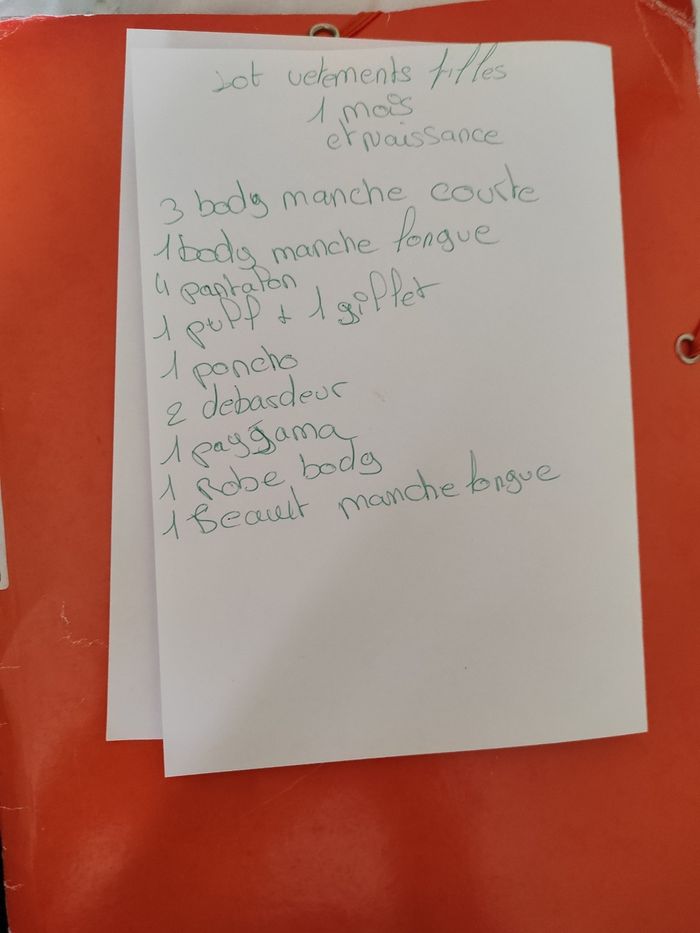 Lot vetements filles
1 mois
et naissance
3 body manche courte
1 body manche longue
4 pantalon
1 pull + 1 gillet
1 poncho
2 debardeur
1 payjama
1 Robe body
1 manche longue